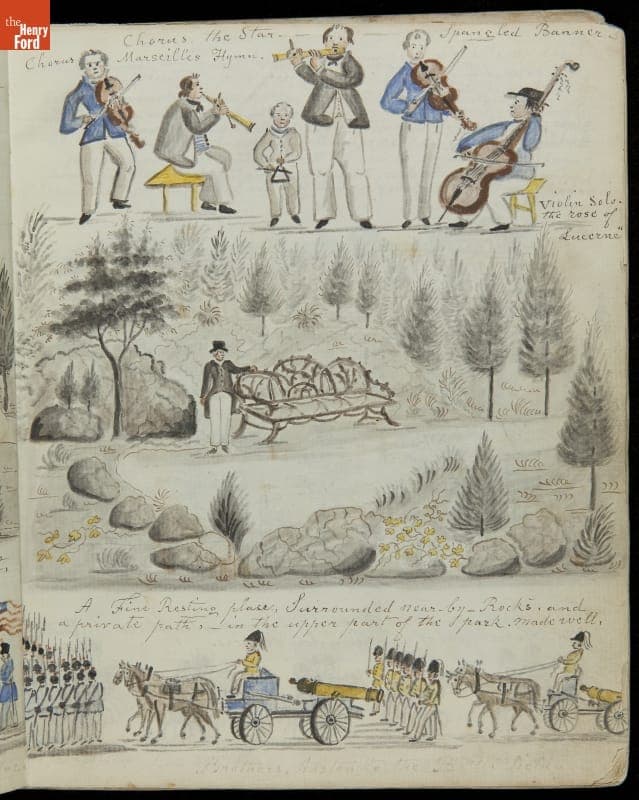 the
Henry
Ford
Chorus, the Star - Spangled Banner -
Chorus Marseilles Hymn.
Violin Solo.
the rose of
Lucerne"
A Fine Resting place, Surrounded near-by-Rocks, and
a private path, - in the upper part of the park, made well,
Brothers,